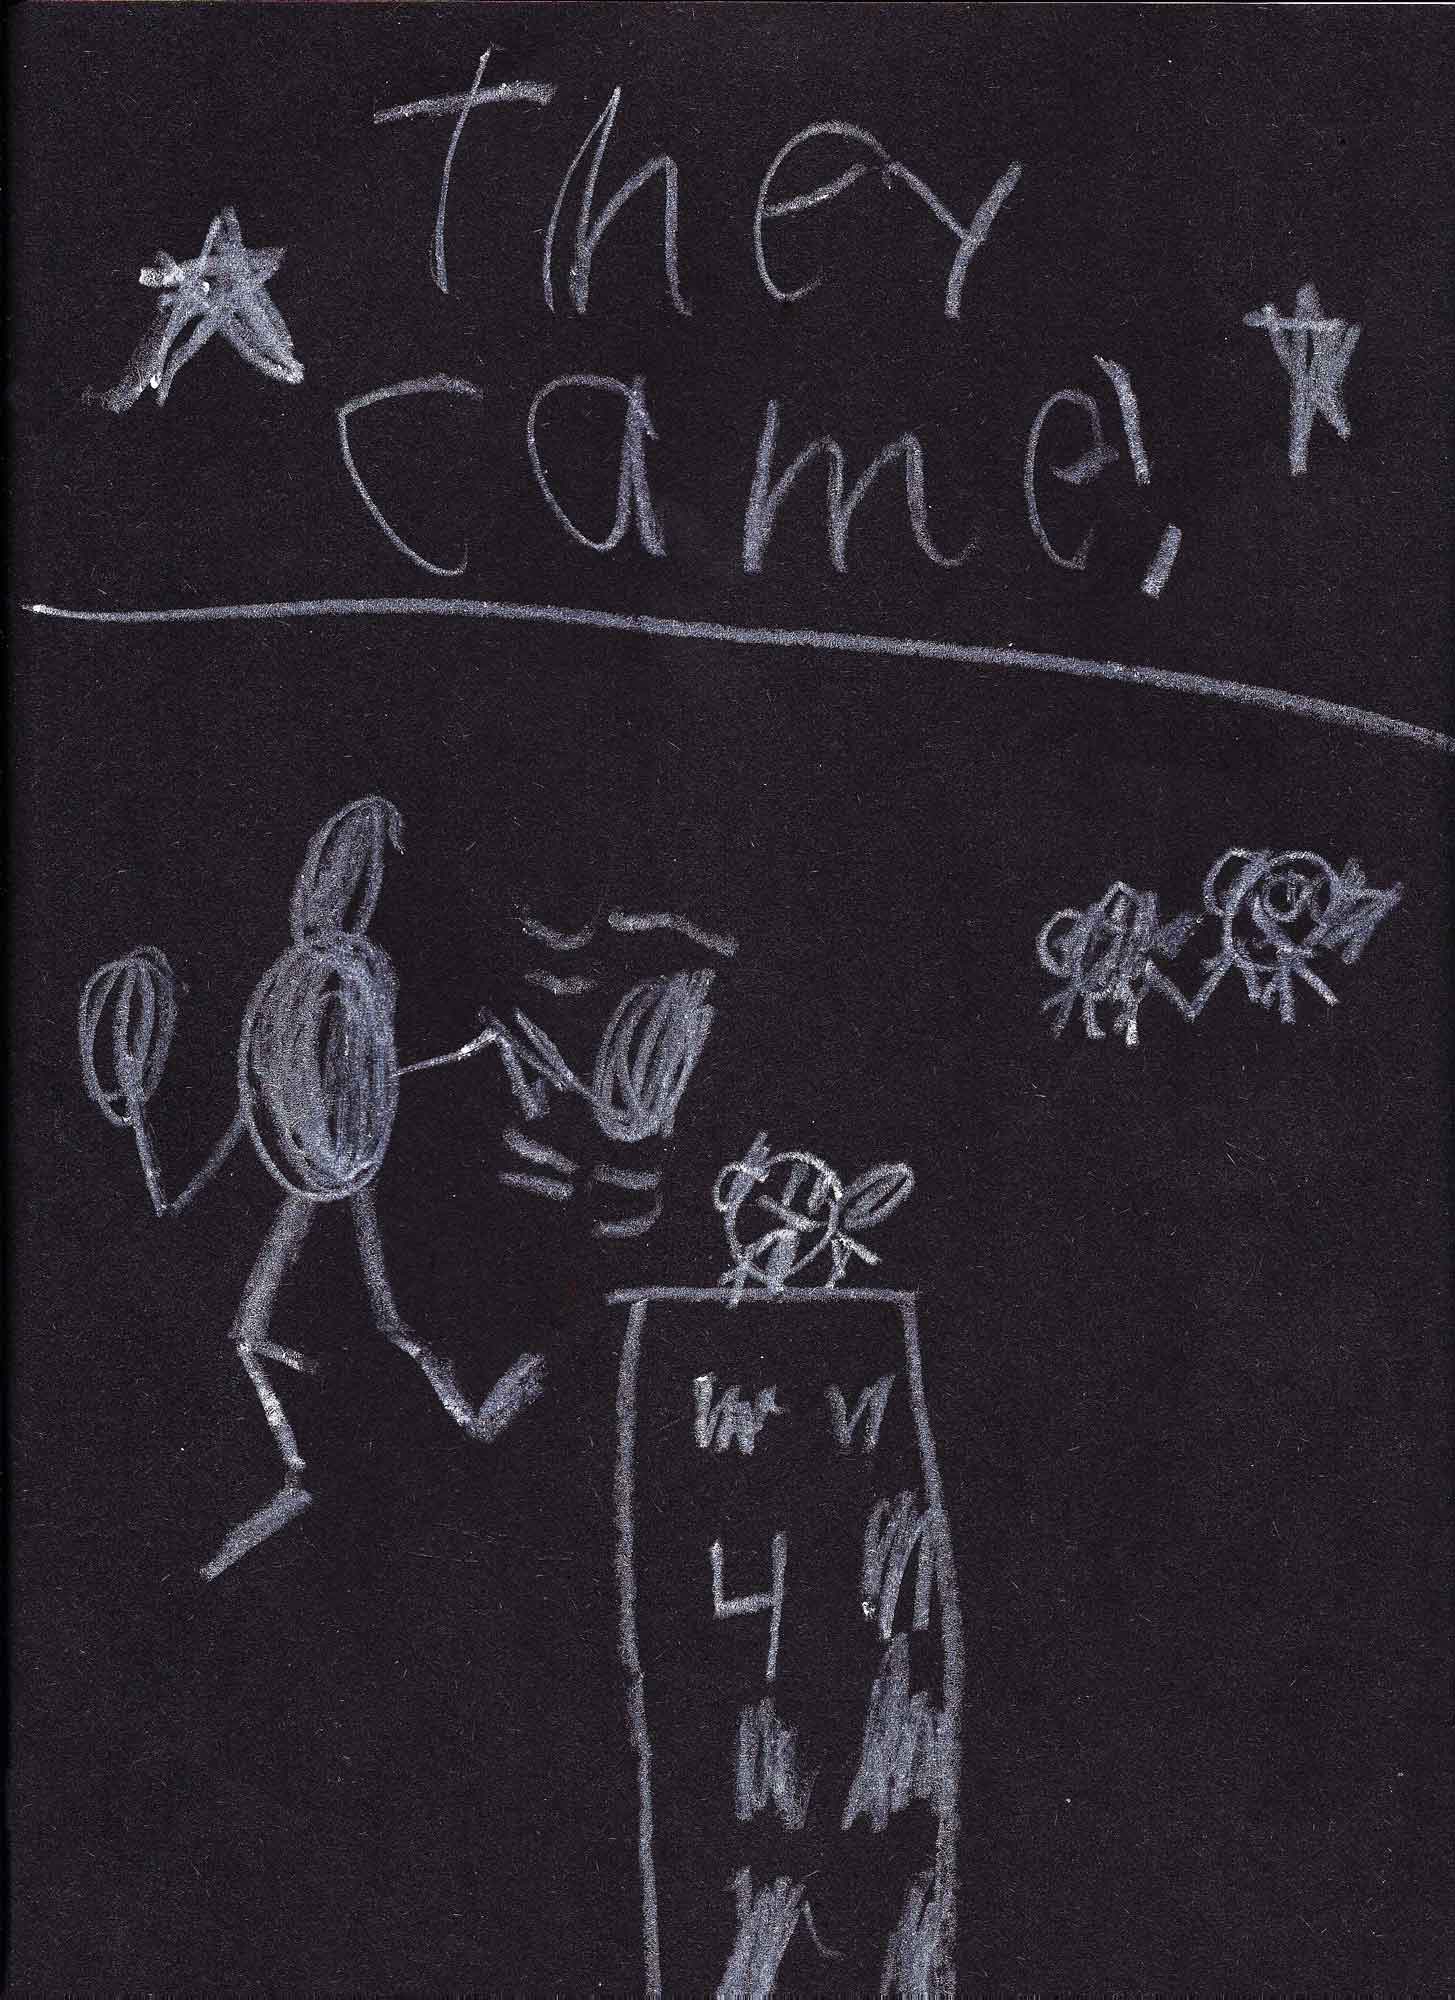 They
came!
4